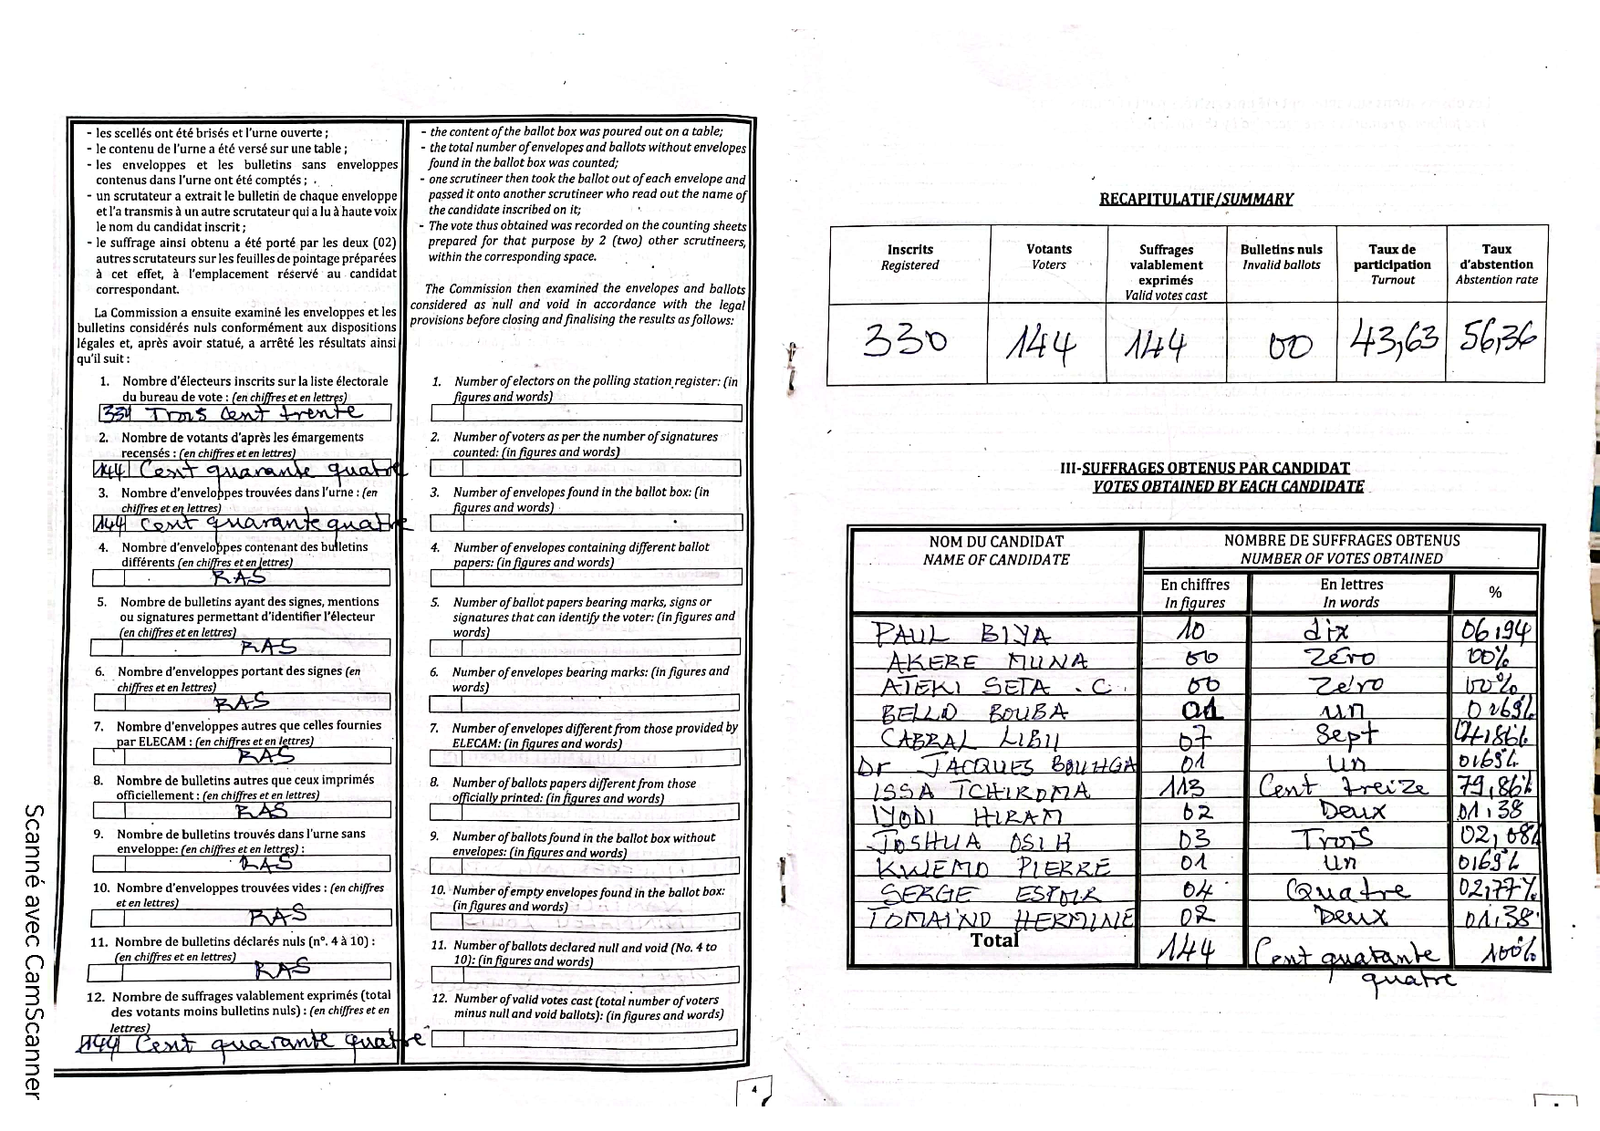 - les scellés ont été brisés et l'urne ouverte ;
- le contenu de l'urne a été versé sur une table ;
- les enveloppes et les bulletins sans enveloppes
contenus dans l'urne ont été comptés ;
- un scrutateur a extrait le bulletin de chaque enveloppe
et l'a transmis à un autre scrutateur qui a lu à haute voix
le nom du candidat inscrit ;
- le suffrage ainsi obtenu a été porté par les deux (02)
autres scrutateurs sur les feuilles de pointage préparées
à cet effet, à l'emplacement réservé au candidat
correspondant.
La Commission a ensuite examiné les enveloppes et les
bulletins considérés nuls conformément aux dispositions
légales et, après avoir statué, a arrêté les résultats ainsi
qu'il suit :
1. Nombre d'électeurs inscrits sur la liste électorale
du bureau de vote : (en chiffres et en lettres)
Trois Cent trente
2. Nombre de votants d'après les émargements
recensés : (en chiffres et en lettres)
144 Cent quarante quatre
3. Nombre d'enveloppes trouvées dans l'urne : (en
chiffres et en lettres)
144 Cent quarante quatre
4. Nombre d'enveloppes contenant des bulletins
différents (en chiffres et en lettres)
RAS
5. Nombre de bulletins ayant des signes, mentions
ou signatures permettant d'identifier l'électeur
(en chiffres et en lettres)
RAS
6. Nombre d'enveloppes portant des signes (en
chiffres et en lettres)
RAS
7. Nombre d'enveloppes autres que celles fournies
par ELECAM : (en chiffres et en lettres)
RAS
8. Nombre de bulletins autres que ceux imprimés
officiellement : (en chiffres et en lettres)
RAS
9. Nombre de bulletins trouvés dans l'urne sans
enveloppe: (en chiffres et en lettres) :
RAS
10. Nombre d'enveloppes trouvées vides : (en chiffres
et en lettres)
RAS
11. Nombre de bulletins déclarés nuls (n°. 4 à 10) :
(en chiffres et en lettres)
RAS
12. Nombre de suffrages valablement exprimés (total
des votants moins bulletins nuls) : (en chiffres et en
lettres)
144 Cent quarante quatre
- the content of the ballot box was poured out on a table;
- the total number of envelopes and ballots without envelopes
found in the ballot box was counted;
- one scrutineer then took the ballot out of each envelope and
passed it onto another scrutineer who read out the name of
the candidate inscribed on it;
- The vote thus obtained was recorded on the counting sheets
prepared for that purpose by 2 (two) other scrutineers,
within the corresponding space.
The Commission then examined the envelopes and ballots
considered as null and void in accordance with the legal
provisions before closing and finalising the results as follows:
1. Number of electors on the polling station register: (in
figures and words)
2. Number of voters as per the number of signatures
counted: (in figures and words)
3. Number of envelopes found in the ballot box: (in
figures and words)
4. Number of envelopes containing different ballot
papers: (in figures and words)
5. Number of ballot papers bearing marks, signs or
signatures that can identify the voter: (in figures and
words)
6. Number of envelopes bearing marks: (in figures and
words)
7. Number of envelopes different from those provided by
ELECAM: (in figures and words)
8. Number of ballots papers different from those
officially printed: (in figures and words)
9. Number of ballots found in the ballot box without
envelopes: (in figures and words)
10. Number of empty envelopes found in the ballot box:
(in figures and words)
11. Number of ballots declared null and void (No. 4 to
10): (in figures and words)
12. Number of valid votes cast (total number of voters
minus null and void ballots): (in figures and words)
4
Scanné avec CamScanner
RECAPITULATIF/SUMMARY
Inscrits Votants Suffrages valablement exprimés Bulletins nuls Taux de participation Taux d'abstention
Registered Voters Valid votes cast Invalid ballots Turnout Abstention rate
330 144 144 00 43,63 56,36
III-SUFFRAGES OBTENUS PAR CANDIDAT
VOTES OBTAINED BY EACH CANDIDATE
NOM DU CANDIDAT NOMBRE DE SUFFRAGES OBTENUS
NAME OF CANDIDATE NUMBER OF VOTES OBTAINED
En chiffres En lettres %
In figures In words
PAUL BIYA 10 dix 06,94
AKERE MUNA 00 Zéro 00%
ATEKI SETA . C. 00 Zéro 00%
BELLO BOUBA 01 un 0,69%
CABRAL LIBII 07 Sept 04,86%
Dr JACQUES BOUHGA 01 un 0,69%
ISSA TCHIROMA 113 Cent treize 79,86%
IYODI HIRAM 02 Deux 01,38
JOSHUA OSIH 03 Trois 02,08%
KWEMO PIERRE 01 un 0,69%
SERGE ESPOIR 04 Quatre 02,77%
TOMAINO HERMINE 02 Deux 01,38
Total 144 Cent quarante quatre 100%